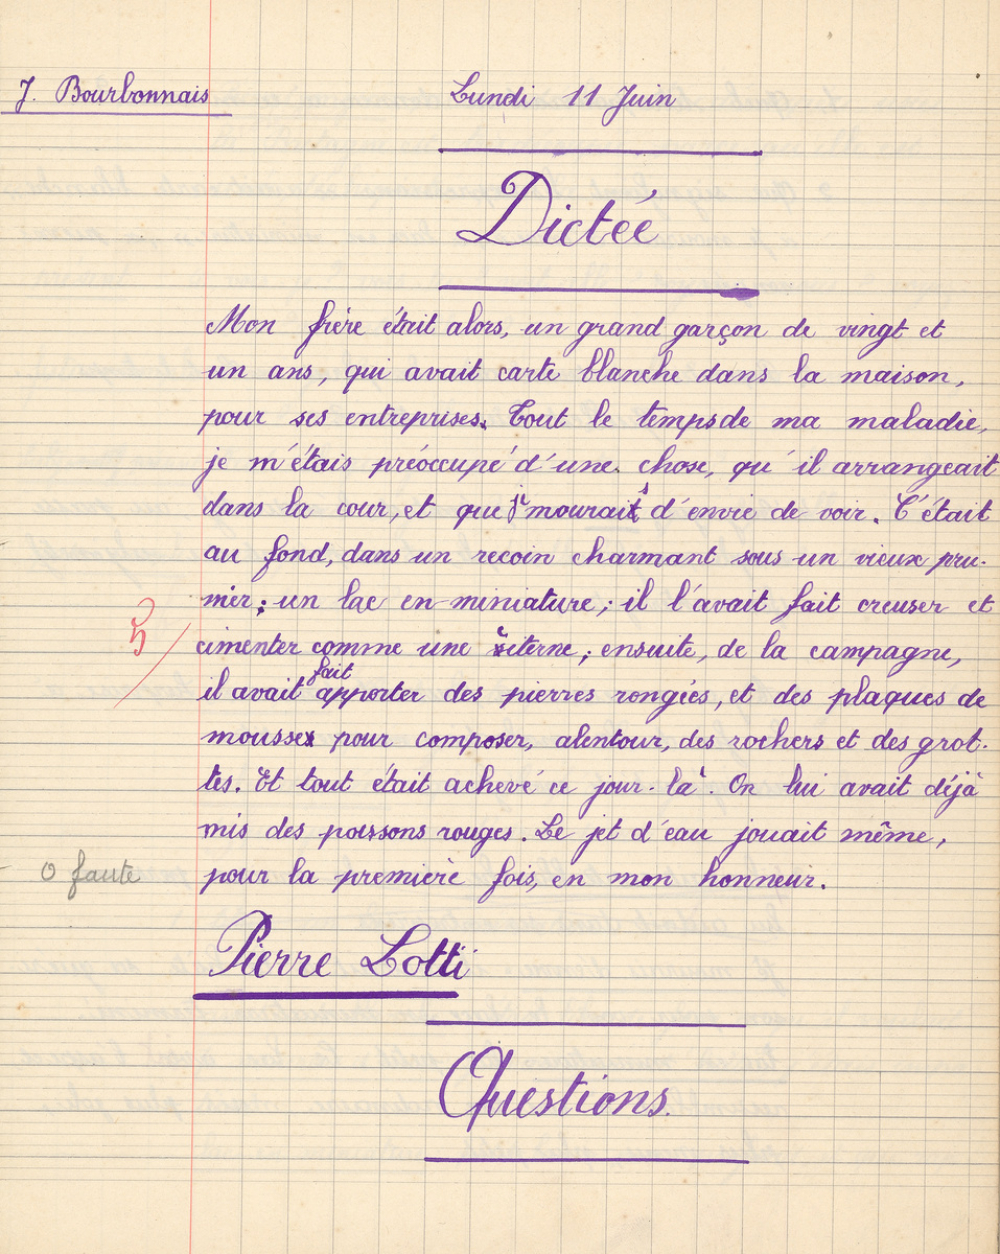 J. Bourbonnais
Lundi 11 Juin
Dictée
Mon frère était alors, un grand garçon de vingt et
un ans, qui avait carte blanche dans la maison,
pour ses entreprises. Tout le temps de ma maladie,
je m'étais préoccupé d'une chose, qu'il arrangeait
dans la cour, et que je mourais d'envie de voir. C'était
au fond, dans un recoin charmant sous un vieux pru-
nier; un lac en miniature; il l'avait fait creuser et
cimenter comme une citerne; ensuite, de la campagne,
il avait fait apporter des pierres rongées, et des plaques de
mousses pour composer, alentour, des rochers et des grot-
tes. Et tout était achevé ce jour-là. On lui avait déjà
mis des poissons rouges. Le jet d'eau jouait même,
0 faute
pour la première fois, en mon honneur.
Pierre Lotti
Questions.